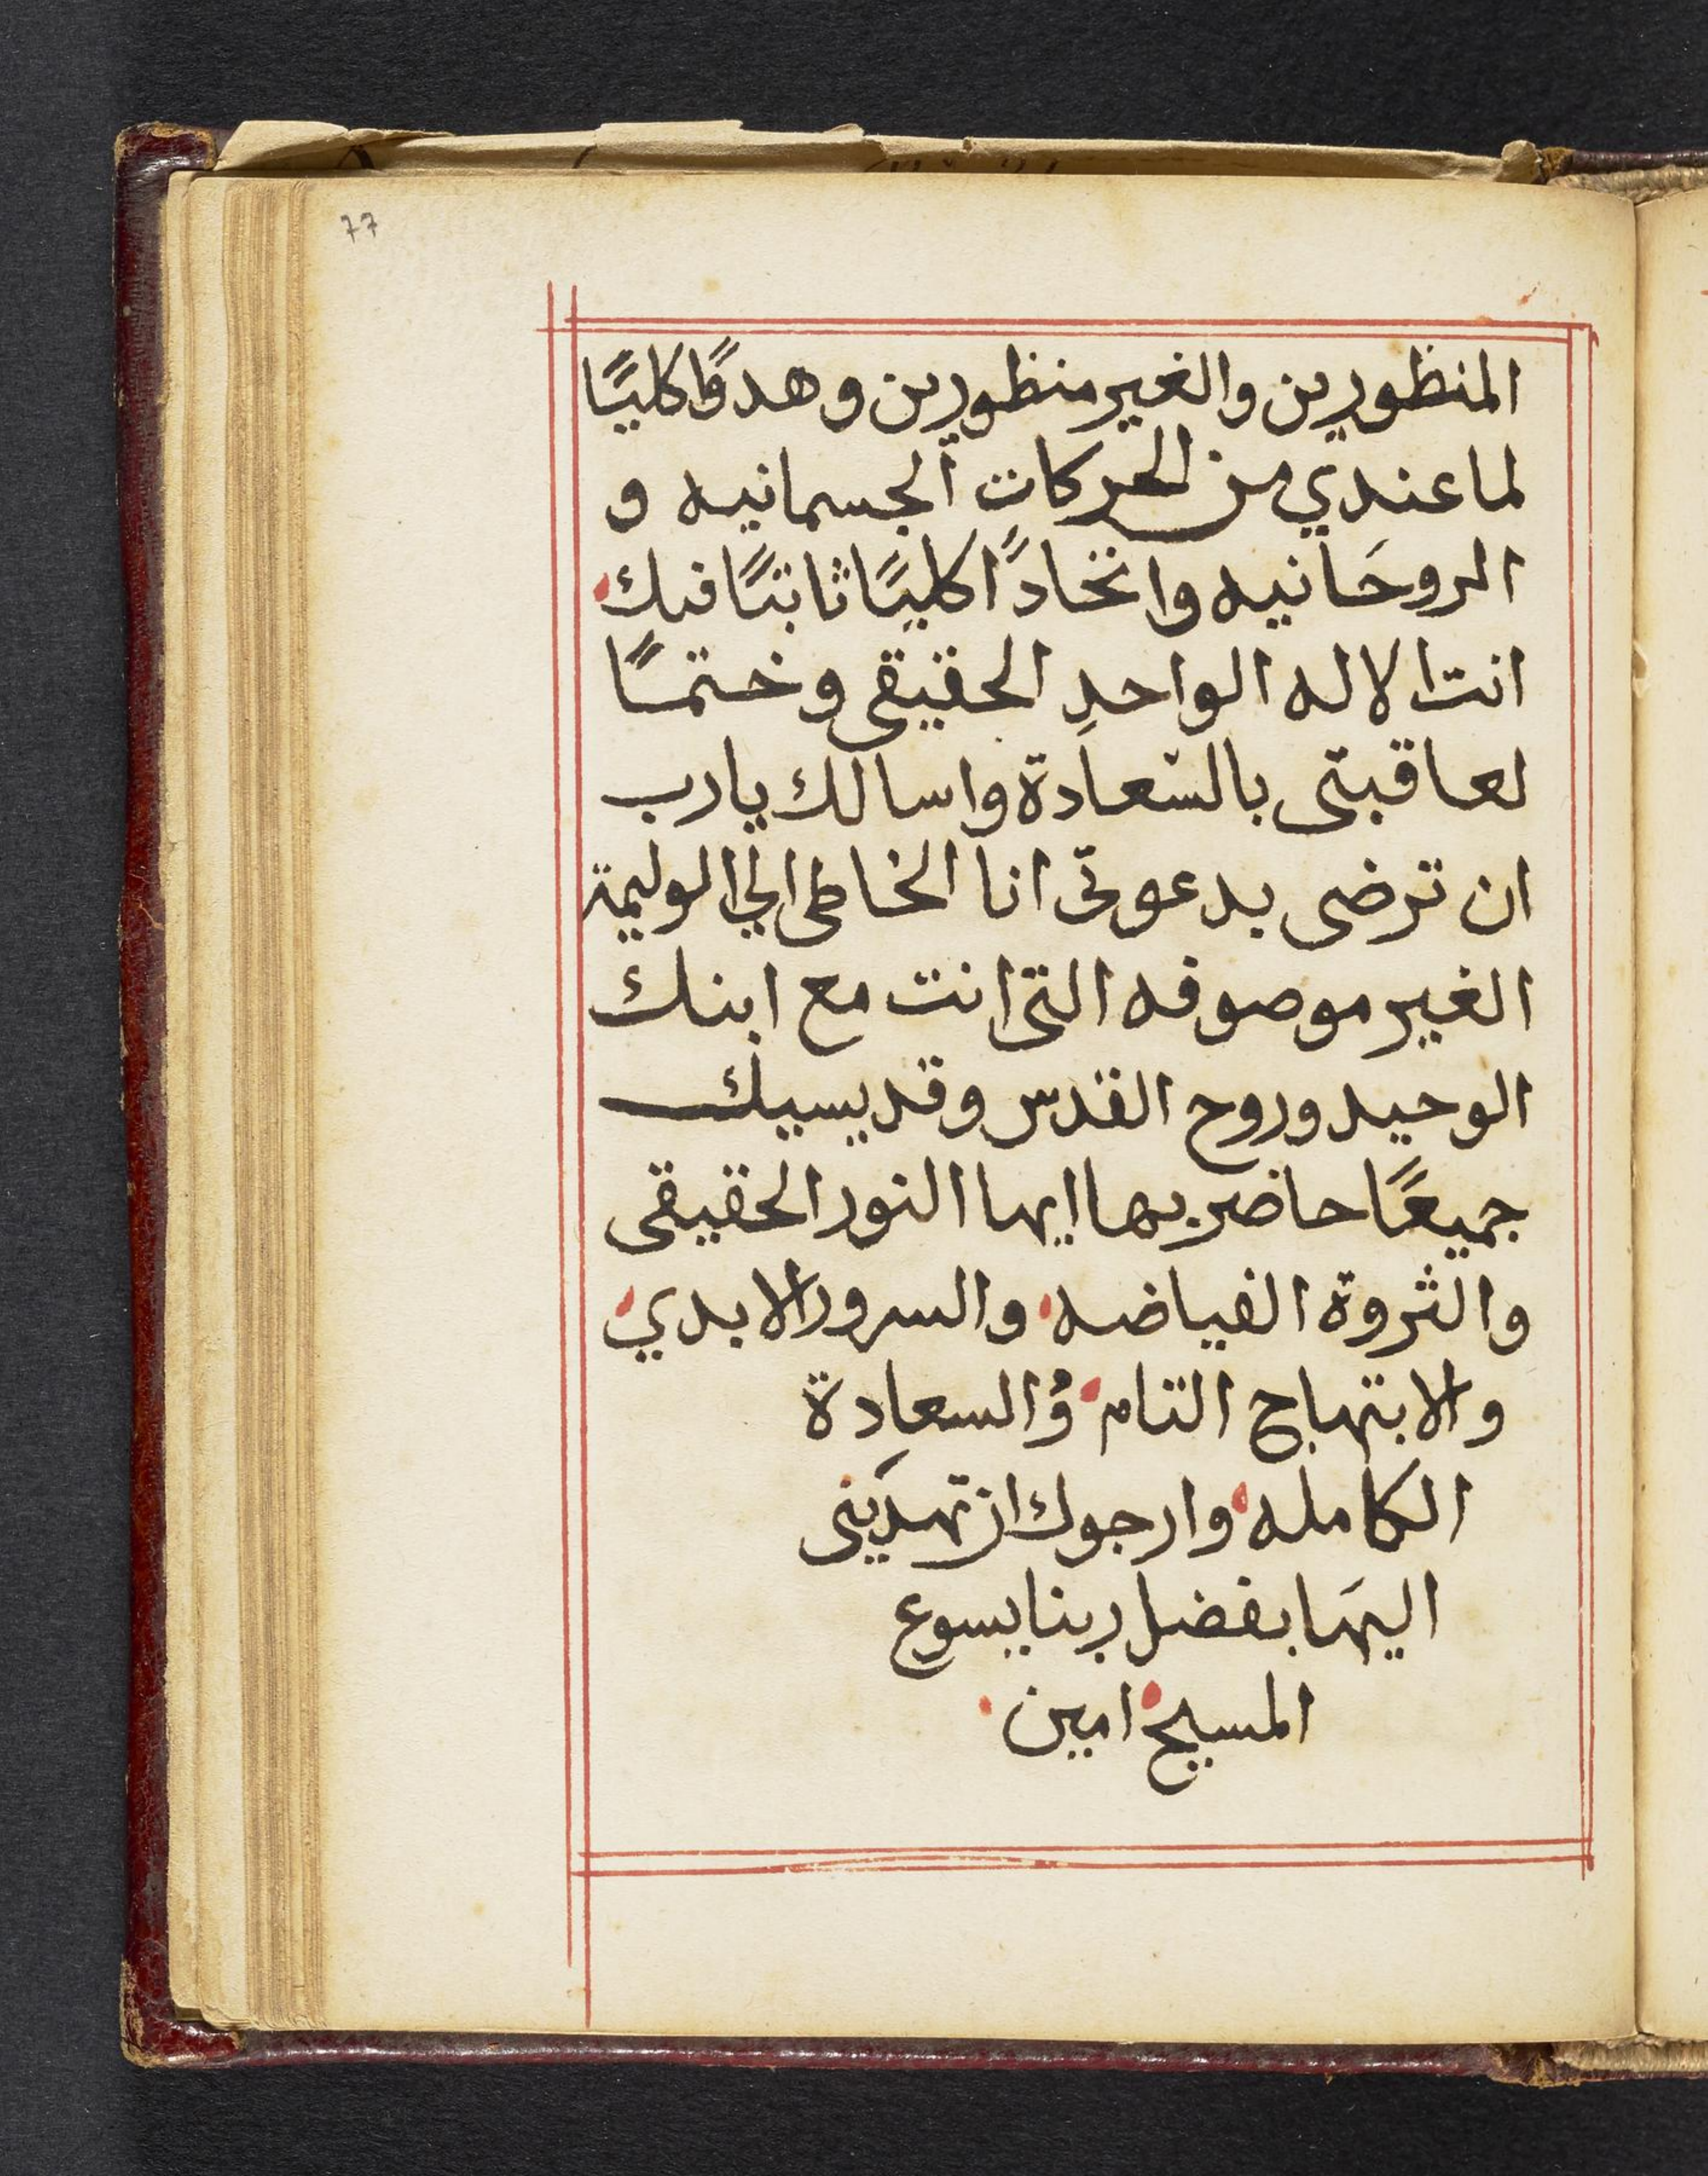 77
المنظورين والغير منظورين وهدوًا كليًا
لما عندي من الحركات الجسمانيه و
الروحَانيه واتحادًا كليًا ثابتًا فيك
انت الاله الواحد الحقيقي وختمًا
لعاقبتي بالسعادة واسالك يارب
ان ترضى بدعوتي انا الخاطي الي الوليمة
الغير موصوفه التي انت مع ابنك
الوحيد وروح القدس وقديسيك
جميعًا حاضر بها ايها النور الحقيقي
والثروة الفياضه والسرور الابدي
والابتهاج التام وُالسعادة
الكامله وارجوك ان تهديَني
اليهَا بفضل ربنا يسوع
المسيح امين